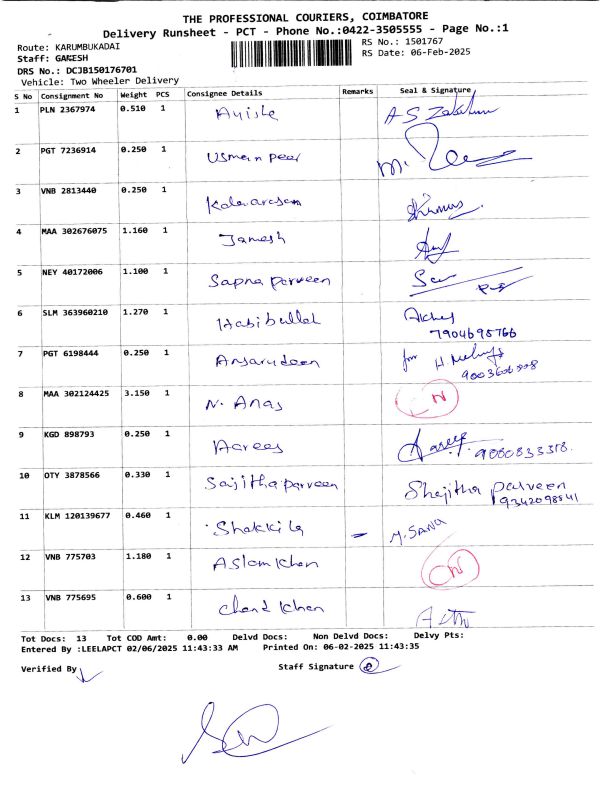 THE PROFESSIONAL COURIERS, COIMBATORE
Delivery Runsheet - PCT - Phone No.:0422-3505555 - Page No.:1
Route: KARUMBUKADAI RS No.: 1501767
Staff: GANESH RS Date: 06-Feb-2025
DRS No.: DCJB150176701
Vehicle: Two Wheeler Delivery
S No Consignment No Weight PCS Consignee Details Remarks Seal & Signature
1 PLN 2367974 0.510 1 Ayisha A S
2 PGT 7236914 0.250 1 Usman peer M.
3 VNB 2813440 0.250 1 Kalaiarasan
4 MAA 302676075 1.160 1 Jamesh
5 NEY 40172006 1.100 1 Sapna parveen
6 SLM 363960210 1.270 1 Habibullah
7904695766
7 PGT 6198444 0.250 1 Ansarudeen for H
8 MAA 302124425 3.150 1 N. Anas N
9 KGD 898793 0.250 1 Aarees
10 OTY 3878566 0.330 1 Sajitha parveen Shejitha parveen
9342098541
11 KLM 120139677 0.460 1 Shakkila - M. SANA
12 VNB 775703 1.180 1 Aslam khan N
13 VNB 775695 0.600 1 Chand khan
Tot Docs: 13 Tot COD Amt: 0.00 Delvd Docs: Non Delvd Docs: Delvy Pts:
Entered By :LEELAPCT 02/06/2025 11:43:33 AM Printed On: 06-02-2025 11:43:35
Verified By Staff Signature